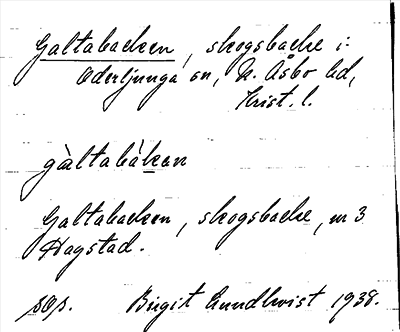 Galtabacken, skogsbacke i:
Oderljunga sn, N. Åsbo hd,
Krist. l.
gàltabáken
Galtabacken, skogsbacke, nr 3
Hagstad.
sep. Birgit Lundkvist 1938.